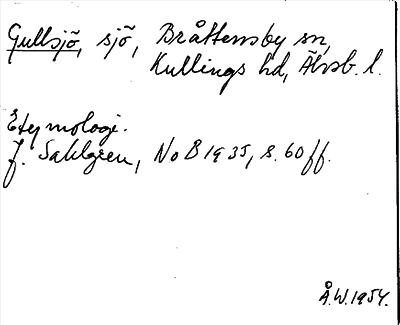 Gullsjö, sjö, Bråttensby sn,
Kullings hd, Älvsb. l.
Etymologi.
J. Sahlgren, NoB 1935, s. 60 ff.
Å.W. 1954.